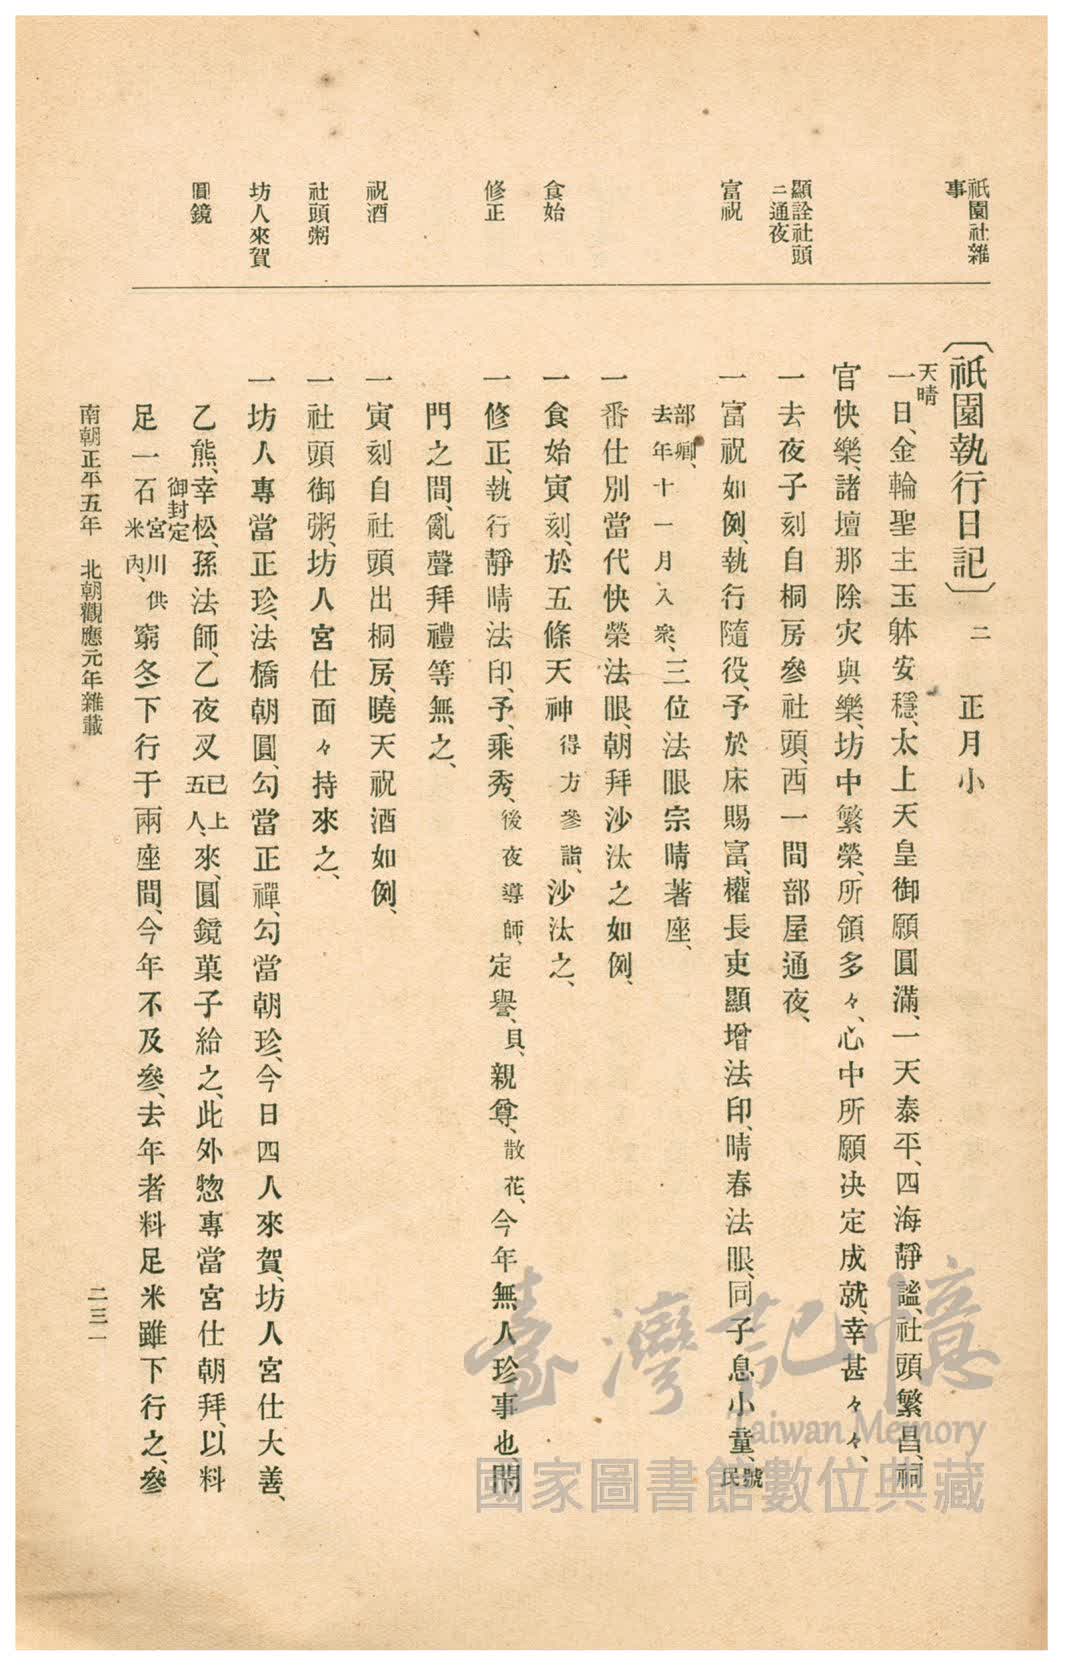 祇園社雜
事
顯詮社頭
ニ通夜
富祝
食始
修正
祝酒
社頭粥
坊人來賀
圓鏡
〔祇園執行日記〕 二 正月小
天晴
一日、金輪聖主玉躰安穩、太上天皇御願圓滿、一天泰平、四海靜謐、社頭繁昌、祠
官快樂、諸壇那除灾與樂、坊中繁榮、所領多々、心中所願決定成就、幸甚々々、
一去夜子刻自桐房參社頭、西一間部屋通夜、
一富祝如例、執行隨役、予於床賜富、權長吏顯增法印、晴春法眼、同子息小童、號民
部卿、去年十一月入衆、三位法眼宗晴著座、
一番仕別當代快榮法眼、朝拜沙汰之如例、
一食始寅刻、於五條天神得方參詣、沙汰之、
一修正、執行靜晴法印、予、乘秀、後夜導師、定譽、貝、親尊、散花、今年無人珍事也、閇
門之間、亂聲拜禮等無之、
一寅刻自社頭出桐房、曉天祝酒如例、
一社頭御粥、坊人宮仕面々持來之、
一坊人專當正珍、法橋朝圓、勾當正禪、勾當朝珍、今日四人來賀、坊人宮仕大善、
乙熊、幸松、孫法師、乙夜叉已上五人、來、圓鏡菓子給之、此外惣專當宮仕朝拜、以料
御封定
足一石宮川供米內、窮冬下行于兩座間、今年不及參、去年者料足米雖下行之、參
南朝正平五年 北朝觀應元年雜載
二三一
臺灣記憶
Taiwan Memory
國家圖書館數位典藏